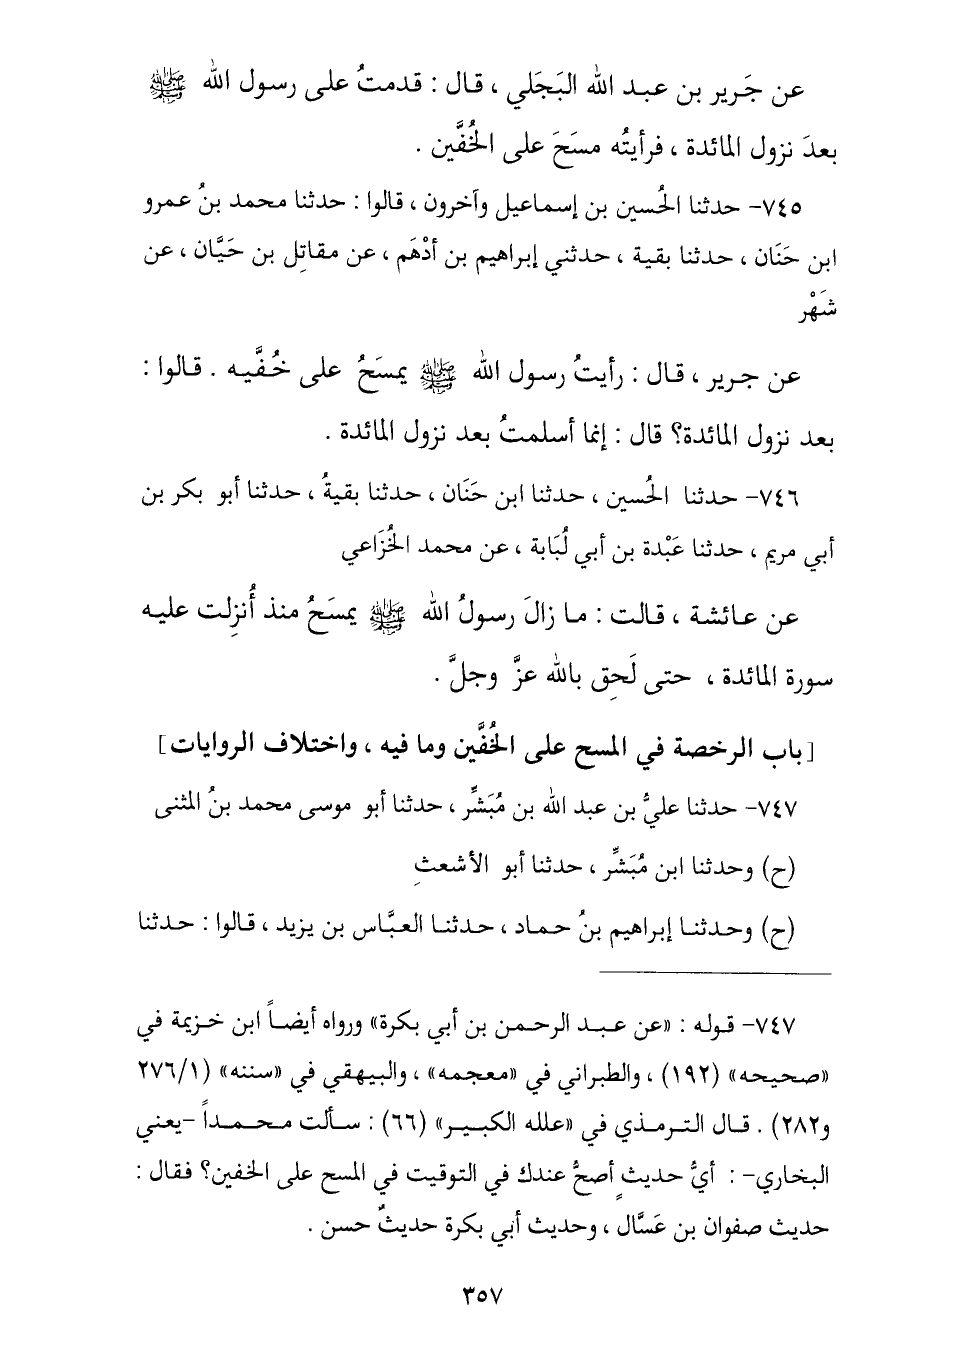 عن جَرير بن عبد الله البَجَلي ، قال : قدمتُ على رسول الله ﷺ
بعدَ نزول المائدة ، فرأيتُه مسَحَ على الخُفَّين .
٧٤٥- حدثنا الحُسين بن إسماعيل وآخرون ، قالوا : حدثنا محمد بنُ عمرو
ابن حَنَان ، حدثنا بقية ، حدثني إبراهيم بن أدْهَم ، عن مقاتِل بن حَيَّان ، عن
شَهْر
عن جرير ، قال : رأيتُ رسول الله ﷺ يمسَحُ على خُفَّيه . قالوا :
بعد نزول المائدة؟ قال : إنما أسلمتُ بعد نزول المائدة .
٧٤٦- حدثنا الحُسين ، حدثنا ابن حَنَان ، حدثنا بقيةُ ، حدثنا أبو بكر بن
أبي مريم ، حدثنا عَبْدة بن أبي لُبَابة ، عن محمد الخُزَاعي
عن عائشة ، قالت : ما زالَ رسولُ الله ﷺ يمسَحُ منذ أُنزِلت عليه
سورة المائدة ، حتى لَحِق بالله عزَّ وجلَّ .
[باب الرخصة في المسح على الخُفَّين وما فيه ، واختلاف الروايات]
٧٤٧- حدثنا عليُّ بن عبد الله بن مُبَشِّر ، حدثنا أبو موسى محمد بنُ المثنى
(ح) وحدثنا ابن مُبَشِّر ، حدثنا أبو الأشعثِ
(ح) وحدثنا إبراهيم بنُ حماد ، حدثنا العبَّاس بن يزيد ، قالوا : حدثنا
٧٤٧- قوله : «عن عبد الرحمن بن أبي بكرة» ورواه أيضاً ابن خزيمة في
«صحيحه» (١٩٢) ، والطبراني في «معجمه» ، والبيهقي في «سننه» (٢٧٦/١
و٢٨٢) . قال الترمذي في «علله الكبير» (٦٦) : سألت محمداً -يعني
البخاري- : أيُّ حديثٍ أصحُّ عندك في التوقيت في المسح على الخفين؟ فقال :
حديث صفوان بن عَسَّال ، وحديث أبي بكرة حديثٌ حسن .
٣٥٧